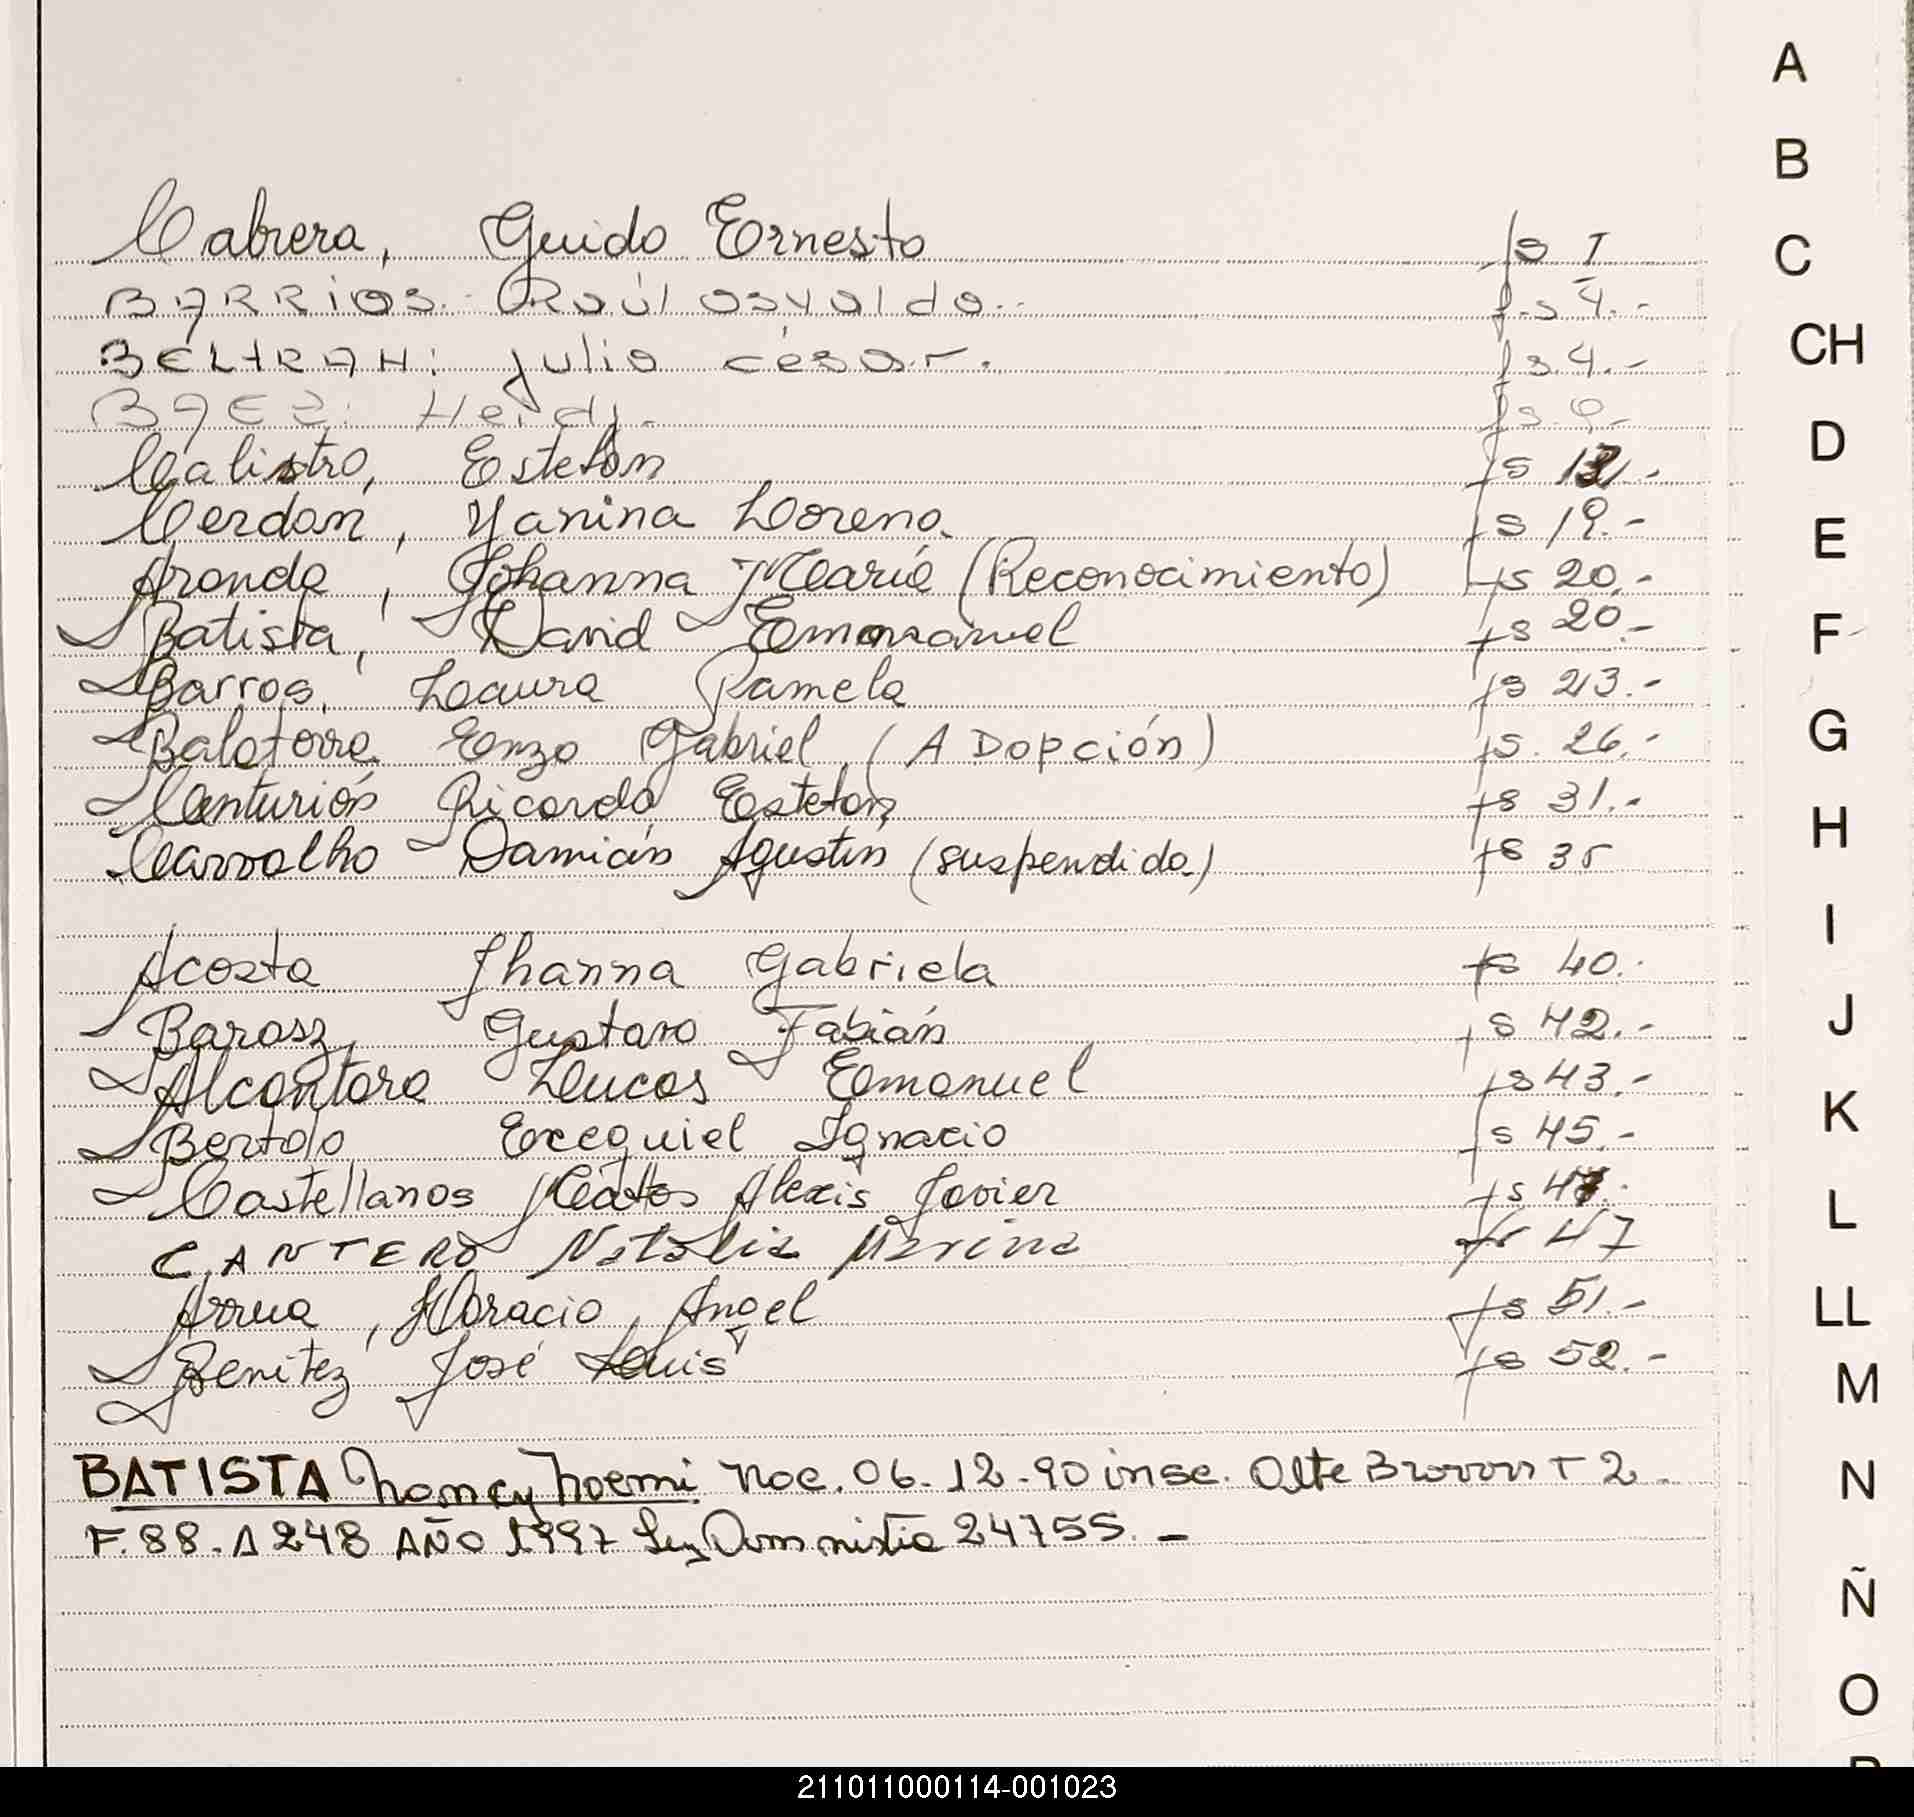 Cabrera, Guido Ernesto fs 1
BARRIOS. Raúl osvaldo. fs 4.-
BELTRAN: Julio césar. fs 4.-
BAEZ: Heidi. fs 9.-
Calistro, Esteban fs
Cerdan, Yanina Lorena. fs 19.-
Aranda, Johanna María (Reconocimiento) fs 20.-
Batista, David Emmanuel fs 20.-
Barros, Laura Pamela fs 23.-
Balatorre Enzo Gabriel (ADopción) fs. 26.-
Centurión Ricardo Esteban fs 31.-
Carvalho Damián Agustin (suspendida) fs 35
Acosta Jhanna Gabriela fs 40.-
Barasz, Gustavo Fabián fs 42.-
Alcantara Lucas Emanuel fs 43.-
Bertolo Execquiel Ignacio fs 45.-
Castellanos Mattos Alexis Javier fs 47.-
CANTERO Natalia Marina fs 47
Arrua, Horacio Angel fs 51.-
Benitez José Luis fs 52.-
BATISTA Nancy Noemi Nac. 06-12-90 insc. Alte Brown T 2
F. 88. A 248 AÑO 1997 Ley Amnistia 24755.-
A
B
C
CH
D
E
F
G
H
I
J
K
L
LL
M
N
Ñ
O
211011000114-001023